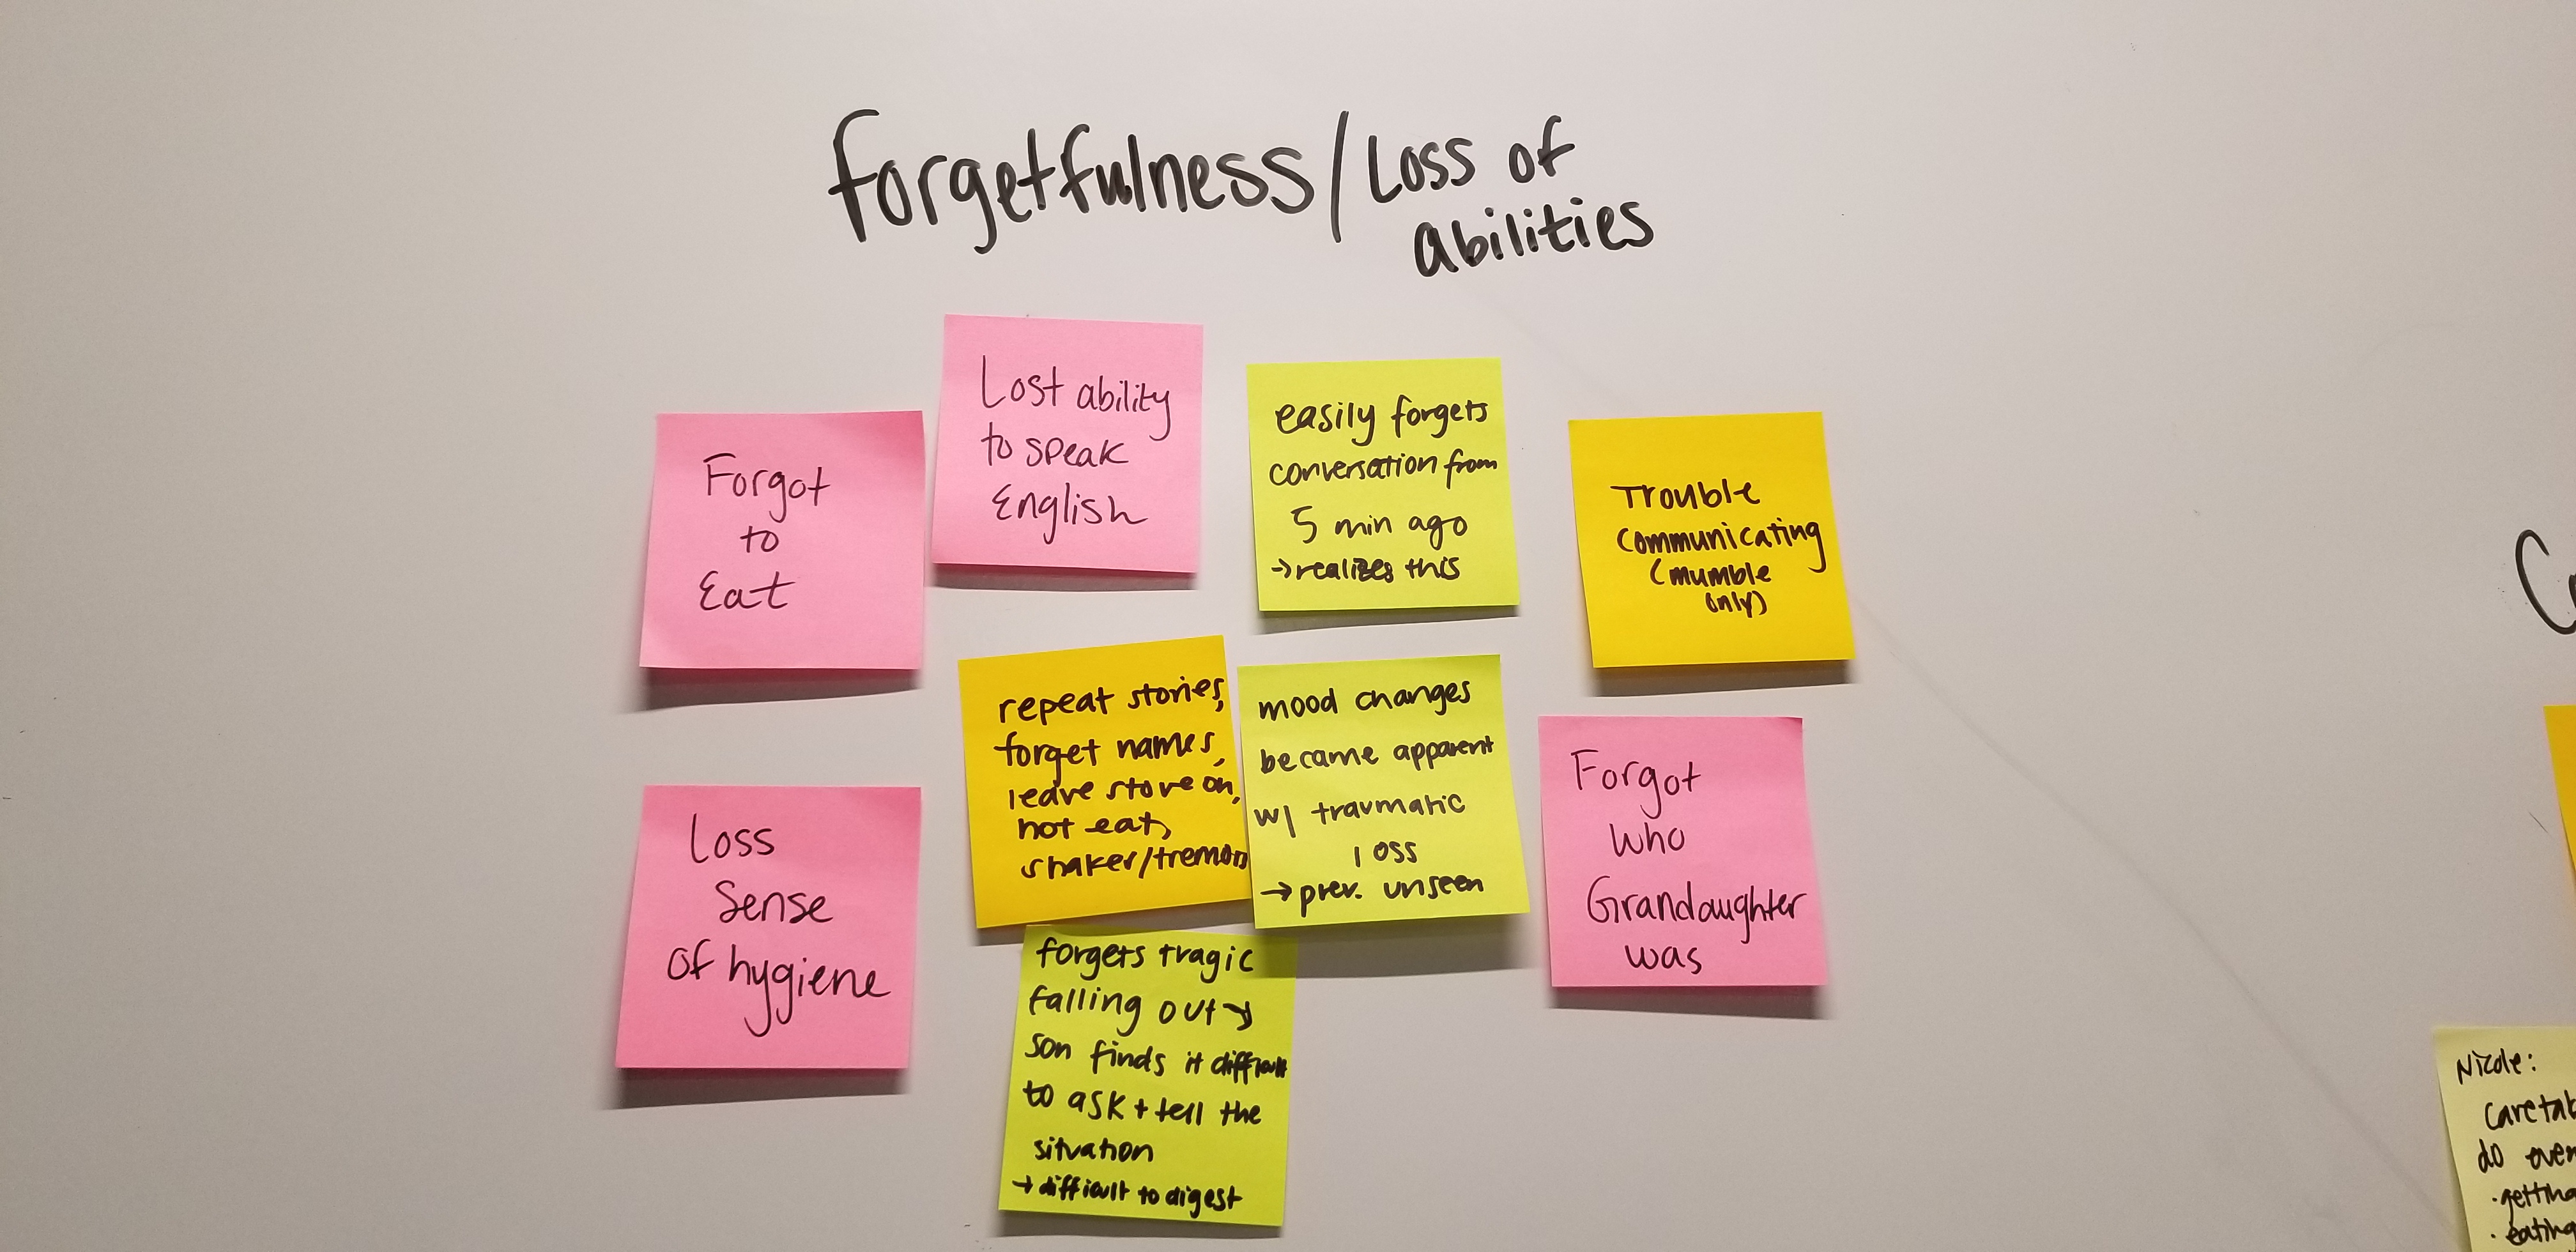 Forgetfulness/Loss of
abilities
Forgot
to
Eat
Lost ability
to speak
English
easily forgets
conversation from
5 min ago
→realizes this
Trouble
communicating
(mumble
only)
Loss
Sense
of hygiene
repeat stories,
forget names,
leave stove on,
not eat,
shaker/tremors
mood changes
became apparent
w/ traumatic
loss
→prev. unseen
Forgot
Who
Grandaughter
was
forgets tragic
falling out→
son finds it difficult
to ask + tell the
situation
→difficult to digest
Nicole:
do